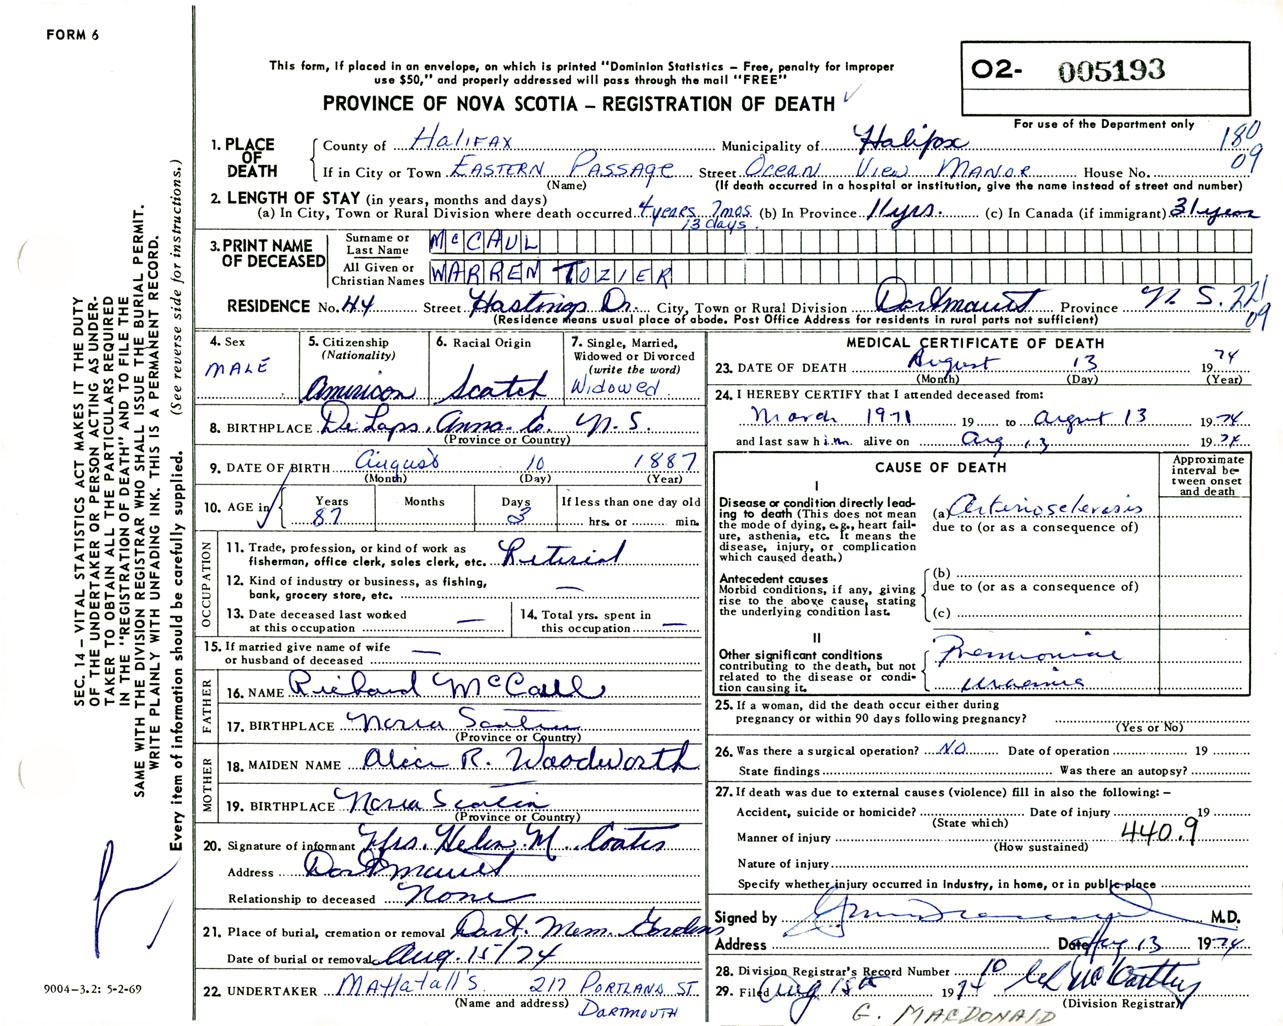 FORM 6
This form, If placed in an envelope, on which is printed "Dominion Statistics – Free, penalty for improper
use $50," and properly addressed will pass through the mail "FREE"
O2- 005193
PROVINCE OF NOVA SCOTIA – REGISTRATION OF DEATH
For use of the Department only
180
09
1. PLACE OF DEATH
County of Halifax Municipality of Halifax
If in City or Town EASTERN PASSAGE Street OCEAN VIEW MANOR House No.
(Name) (If death occurred in a hospital or institution, give the name instead of street and number)
2. LENGTH OF STAY (in years, months and days)
(a) In City, Town or Rural Division where death occurred 4 years 7 mos. (b) In Province 11 yrs. (c) In Canada (if immigrant) 31 years
13 days.
3. PRINT NAME OF DECEASED
Surname or Last Name McCAUL
All Given or Christian Names WARREN TOZIER
RESIDENCE No. 44 Street Hastings Dr. City, Town or Rural Division Dartmouth Province N S. 221
09
(Residence means usual place of abode. Post Office Address for residents in rural parts not sufficient)
4. Sex
MALE
5. Citizenship
(Nationality)
American
6. Racial Origin
Scotch
7. Single, Married,
Widowed or Divorced
(write the word)
Widowed
8. BIRTHPLACE De Laps. Anna. Co. N. S.
(Province or Country)
9. DATE OF BIRTH August 10 1887
(Month) (Day) (Year)
10. AGE in
Years
87
Months
Days
3
If less than one day old
hrs. or min.
OCCUPATION
11. Trade, profession, or kind of work as
fisherman, office clerk, sales clerk, etc. Retired
12. Kind of industry or business, as fishing,
bank, grocery store, etc. —
13. Date deceased last worked
at this occupation —
14. Total yrs. spent in
this occupation —
15. If married give name of wife
or husband of deceased —
FATHER
16. NAME Richard McCaul
17. BIRTHPLACE Nova Scotia
(Province or Country)
MOTHER
18. MAIDEN NAME Alice R. Woodworth
19. BIRTHPLACE Nova Scotia
(Province or Country)
20. Signature of informant Mrs. Helen M. Coates
Address Dartmouth
Relationship to deceased None
21. Place of burial, cremation or removal Dart. Mem. Gardens
Date of burial or removal Aug. 15/74
22. UNDERTAKER Mattatall's 217 PORTLAND ST.
(Name and address) DARTMOUTH
MEDICAL CERTIFICATE OF DEATH
23. DATE OF DEATH August 13 1974
(Month) (Day) (Year)
24. I HEREBY CERTIFY that I attended deceased from:
March 1971 19 to August 13 1974
and last saw him alive on Aug 13 1974
CAUSE OF DEATH
Approximate
interval be-
tween onset
and death
I
Disease or condition directly lead-
ing to death (This does not mean
the mode of dying, e.g., heart fail-
ure, asthenia, etc. It means the
disease, injury, or complication
which caused death.)
(a) Arteriosclerosis
due to (or as a consequence of)
Antecedent causes
Morbid conditions, if any, giving
rise to the above cause, stating
the underlying condition last.
(b)
due to (or as a consequence of)
(c)
II
Other significant conditions
contributing to the death, but not
related to the disease or condi-
tion causing it.
Pneumoniae
uraemia
25. If a woman, did the death occur either during
pregnancy or within 90 days following pregnancy?
(Yes or No)
26. Was there a surgical operation? NO Date of operation 19
State findings Was there an autopsy?
27. If death was due to external causes (violence) fill in also the following: –
Accident, suicide or homicide? Date of injury 19
(State which)
Manner of injury 440.9
(How sustained)
Nature of injury
Specify whether injury occurred in Industry, in home, or in public place
Signed by M.D.
Address Date Aug 13 1974
28. Division Registrar's Record Number 10
29. Filed Aug 15th 1974 McCarthy
(Division Registrar)
G. MACDONALD
SEC. 14 – VITAL STATISTICS ACT MAKES IT THE DUTY
OF THE UNDERTAKER OR PERSON ACTING AS UNDER-
TAKER TO OBTAIN ALL THE PARTICULARS REQUIRED
IN THE "REGISTRATION OF DEATH" AND TO FILE THE
SAME WITH THE DIVISION REGISTRAR WHO SHALL ISSUE THE BURIAL PERMIT.
WRITE PLAINLY WITH UNFADING INK. THIS IS A PERMANENT RECORD.
Every item of information should be carefully supplied. (See reverse side for instructions.)
9004–3.2: 5-2-69